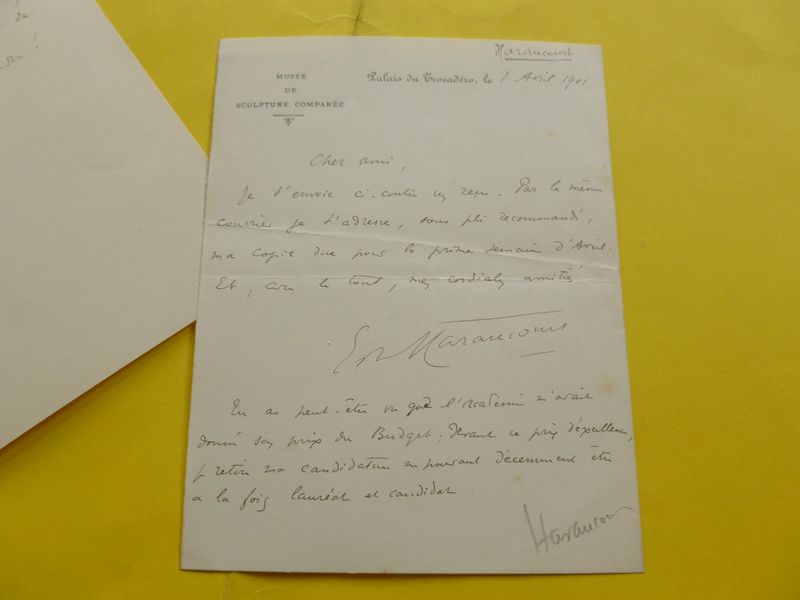 de
Haraucourt
MUSÉE
DE
SCULPTURE COMPARÉE
Palais du Trocadéro, le 1 Avril 1901
Cher ami,
Je t'envoie ci-contre un reçu. Par le même
courrier je t'adresse, sous pli recommandé,
ma copie due pour la première semaine d'Avril.
Et, avec le tout, mes cordiales amitiés
Ed Haraucourt
Tu as peut-être vu que l'Académie m'avait
donné son prix du Budget; devant ce prix d'excellence,
je retire ma candidature ne pouvant décemment être
à la fois lauréat et candidat.
Haraucourt